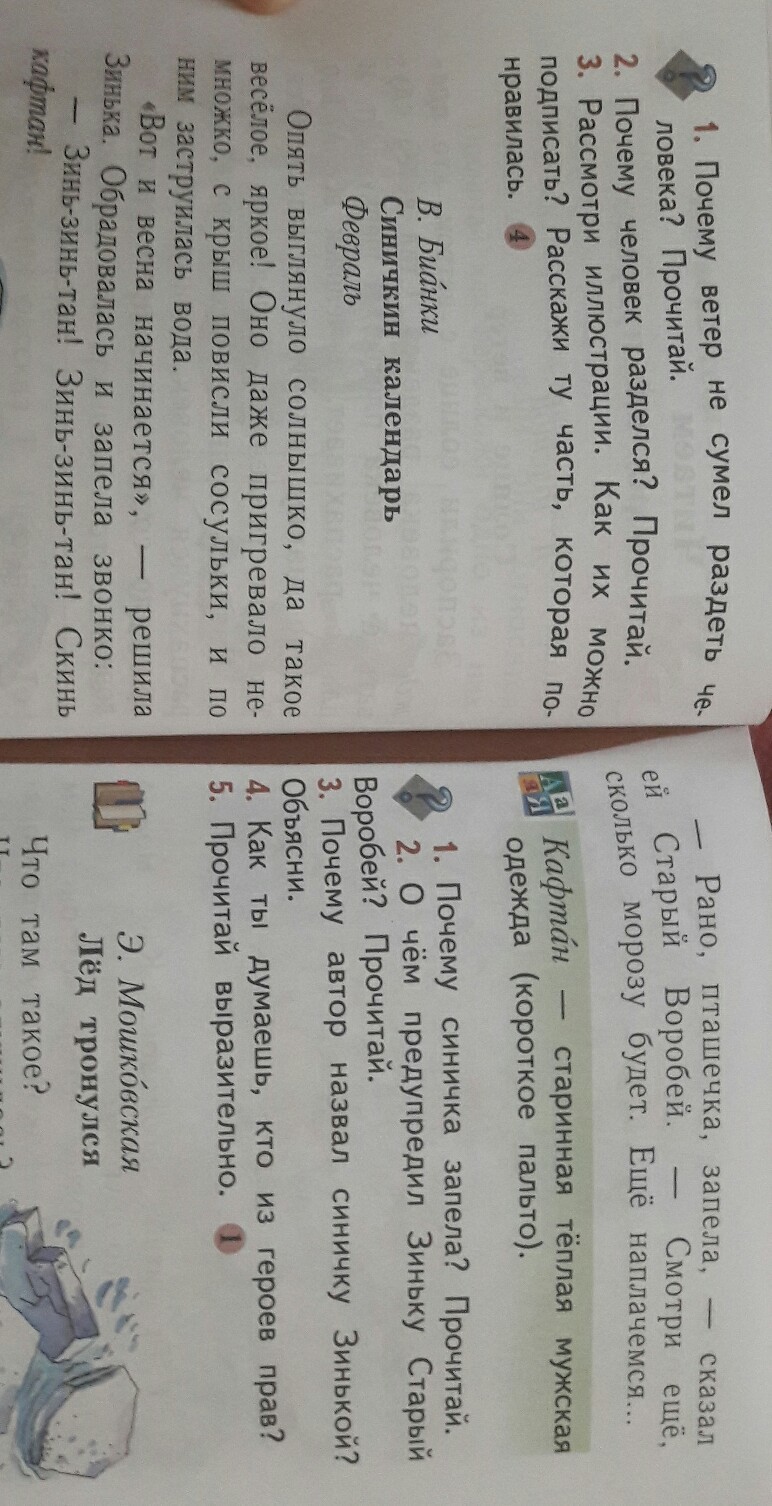 1. Почему ветер не сумел раздеть че-
ловека? Прочитай.
2. Почему человек разделся? Прочитай.
3. Рассмотри иллюстрации. Как их можно
подписать? Расскажи ту часть, которая по-
нравилась. 4
В. Биа́нки
Синичкин календарь
Февраль
Опять выглянуло солнышко, да такое
весёлое, яркое! Оно даже пригревало не-
множко, с крыш повисли сосульки, и по
ним заструилась вода.
«Вот и весна начинается», — решила
Зинька. Обрадовалась и запела звонко:
— Зинь-зинь-тан! Зинь-зинь-тан! Скинь
кафтан!
— Рано, пташечка, запела, — сказал
ей Старый Воробей. — Смотри ещё,
сколько морозу будет. Ещё наплачемся...
Аа
яЯ
Кафта́н — старинная тёплая мужская
одежда (короткое пальто).
1. Почему синичка запела? Прочитай.
2. О чём предупредил Зиньку Старый
Воробей? Прочитай.
3. Почему автор назвал синичку Зинькой?
Объясни.
4. Как ты думаешь, кто из героев прав?
5. Прочитай выразительно. 1
Э. Мошко́вская
Лёд тронулся
Что там такое?